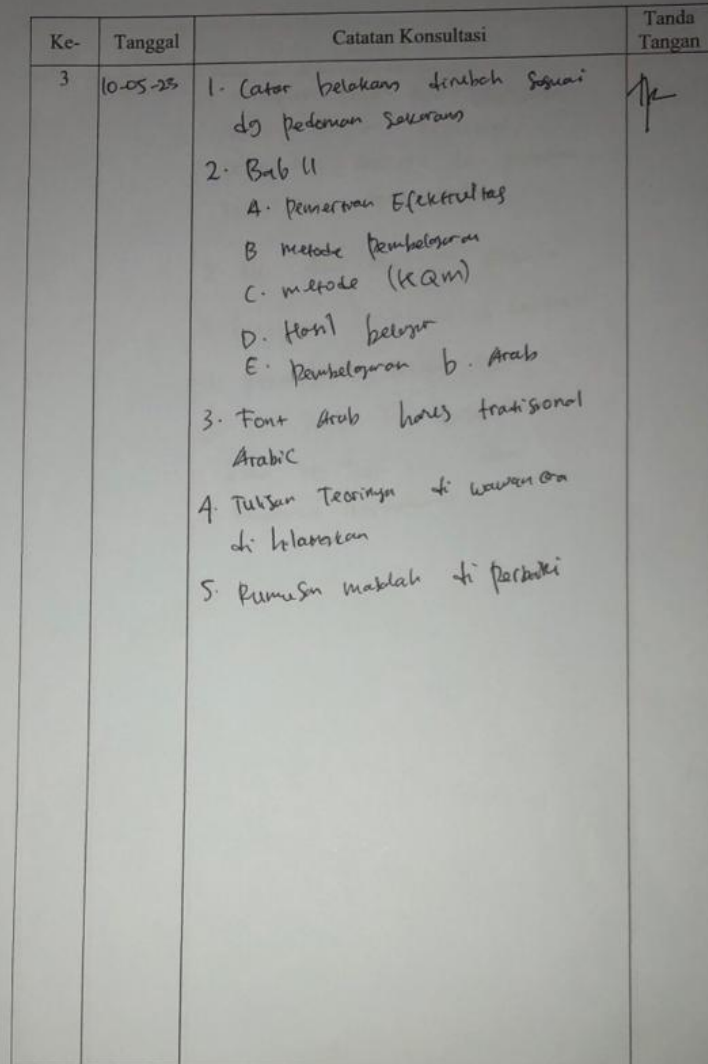 Ke- Tanggal Catatan Konsultasi Tanda Tangan
3 10-05-23 1. Latar belakang dirubah sesuai
dg pedoman sekarang
2. Bab II
A. Pengertian Efektivitas
B metode Pembelajaran
C. metode (KQM)
D. Hasil belajar
E. Pembelajaran b. Arab
3. Font Arab harus tradisional
Arabic
4. Tulisan Teorinya di wawancara
di
5. Rumusan masalah di perbaiki